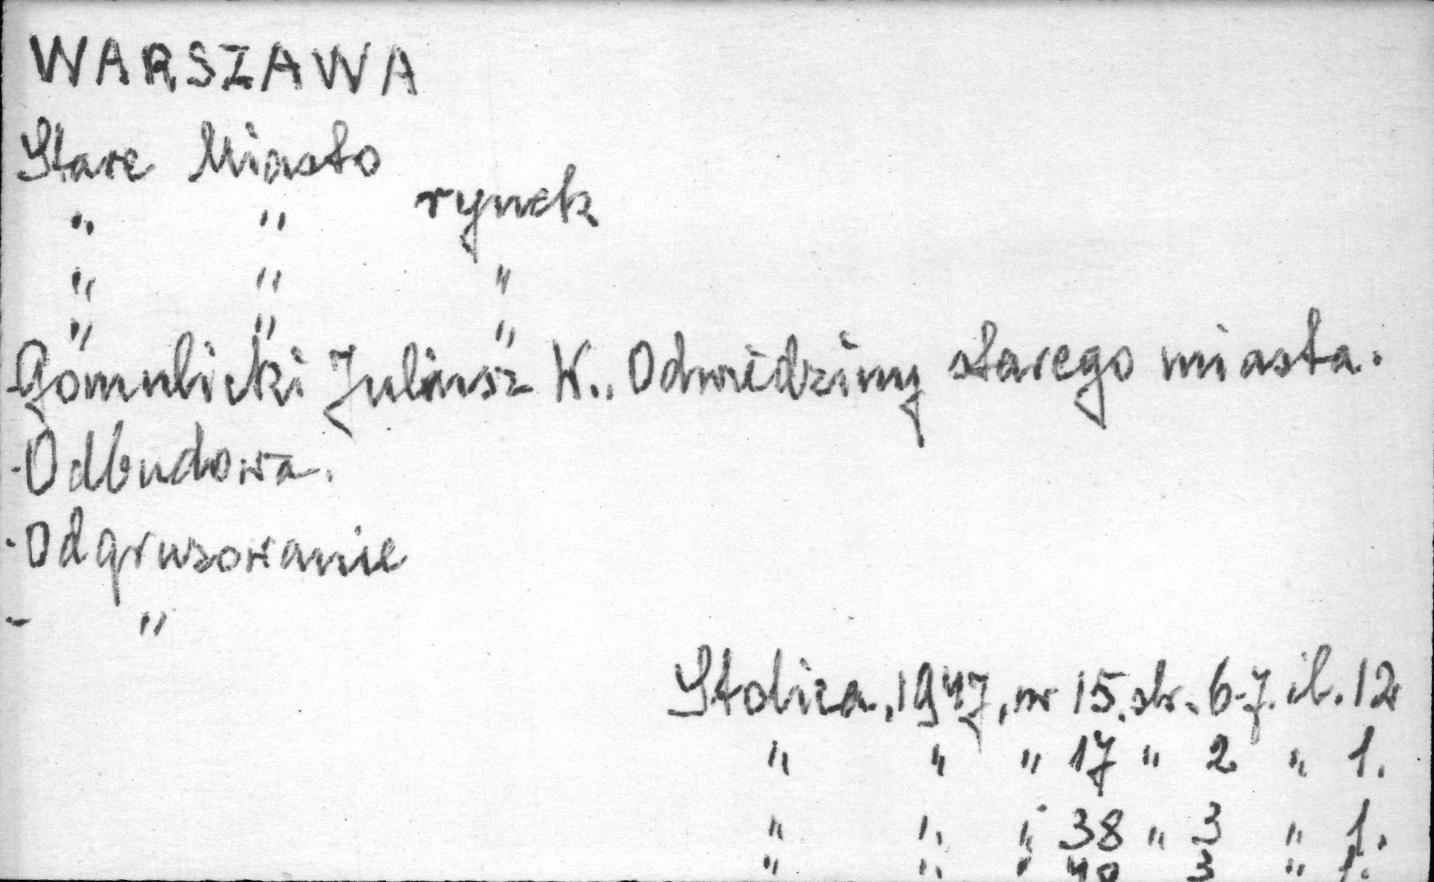 WARSZAWA
Stare Miasto
" " rynek
" " "
" " "
Gomulicki Juliusz W., Odwiedzimy starego miasta.
- Odbudowa.
- Odgruzowanie
- "
Stolica, 1947, nr 15. str. 6-7. il. 12
" " " 17 " 2 " 1.
" " " 38 " 3 " 1.
" " " 40 3 " 1.